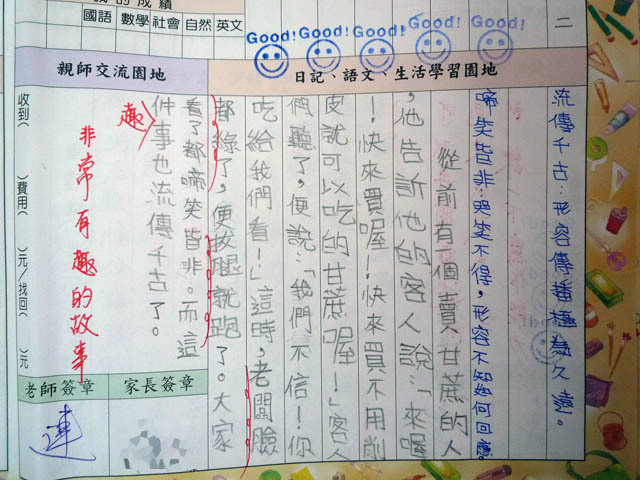 我的成績
國語 數學 社會 自然 英文
Good! Good! Good! Good! Good!
二
日記、語文、生活學習園地
流傳千古:形容傳播極為久遠。
啼笑皆非:哭笑不得,形容不知如何回應
從前有個賣甘蔗的人
,他告訴他的客人說:「來喔
!快來買喔!快來買不用削
皮就可以吃的甘蔗喔!」客人
們聽了,便說:「我們不信!你
吃給我們看!」這時,老闆臉
都綠了,便拔腿就跑了。大家
看了都啼笑皆非。而這
件事也流傳千古了。
趣
親師交流園地
非常有趣的故事
收到( )費用( )元/找回( )元
家長簽章
老師簽章
連